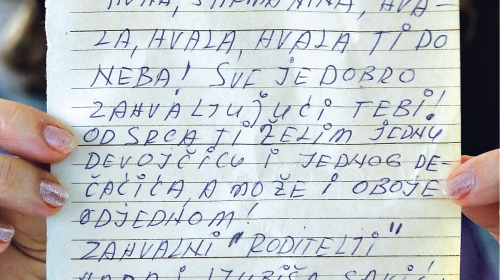 LA, HVALA, HVALA TI DO
NEBA! SVE JE DOBRO
ZAHVALJUJUĆI TEBI!
OD SRCA TI ŽELIM JEDNU
DEVOJČICU I JEDNOG DE-
ČAČIĆA, A MOŽE I OBOJE
ODJEDNOM!
ZAHVALNI "RODITELJI"